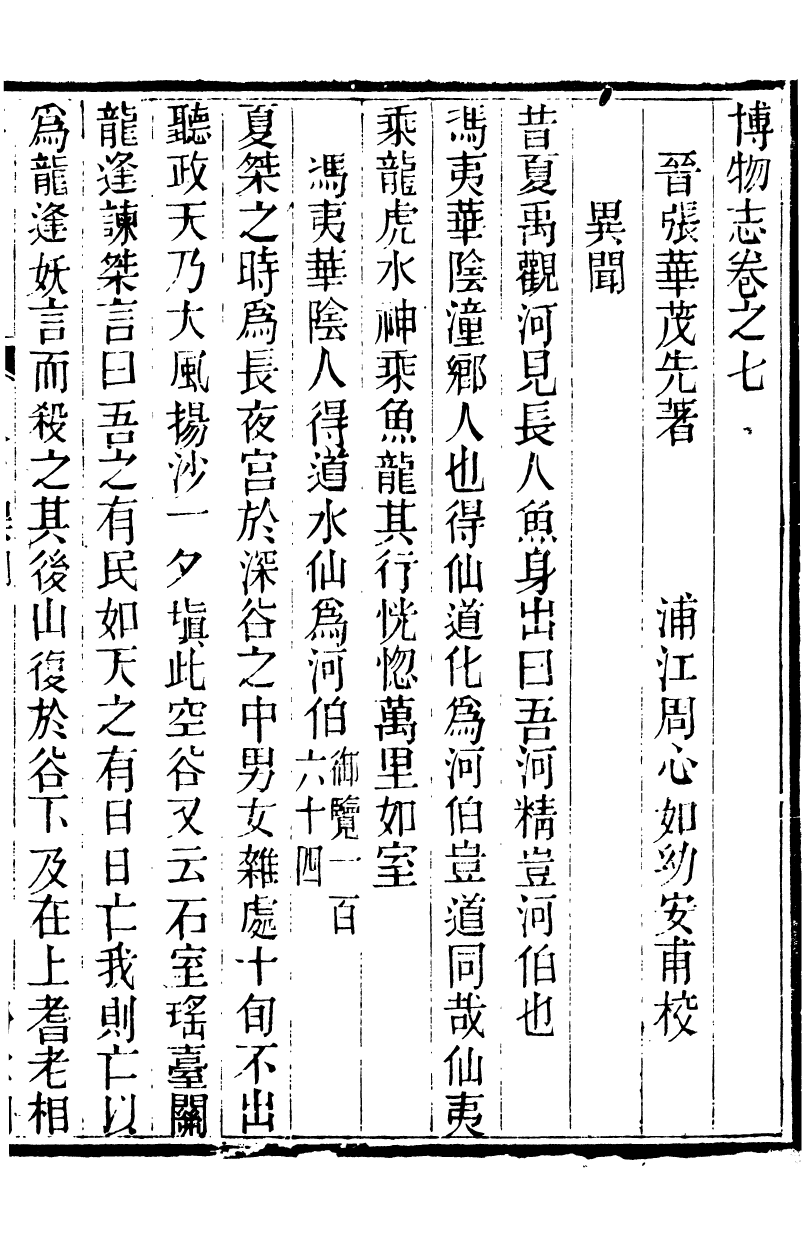 博物志卷之七
晉張華茂先著　浦江周心如幼安甫校
異聞
昔夏禹觀河見長人魚身出曰吾河精豈河伯也
馮夷華陰潼鄉人也得仙道化爲河伯豈道同哉仙夷
乘龍虎水神乘魚龍其行恍惚萬里如室
馮夷華陰人得道水仙爲河伯御覽一百六十四
夏桀之時爲長夜宮於深谷之中男女雜處十旬不出
聽政天乃大風揚沙一夕塡此空谷又云石室瑤臺關
龍逢諫桀言曰吾之有民如天之有日日亡我則亡以
爲龍逢妖言而殺之其後山復於谷下及在上耆老相